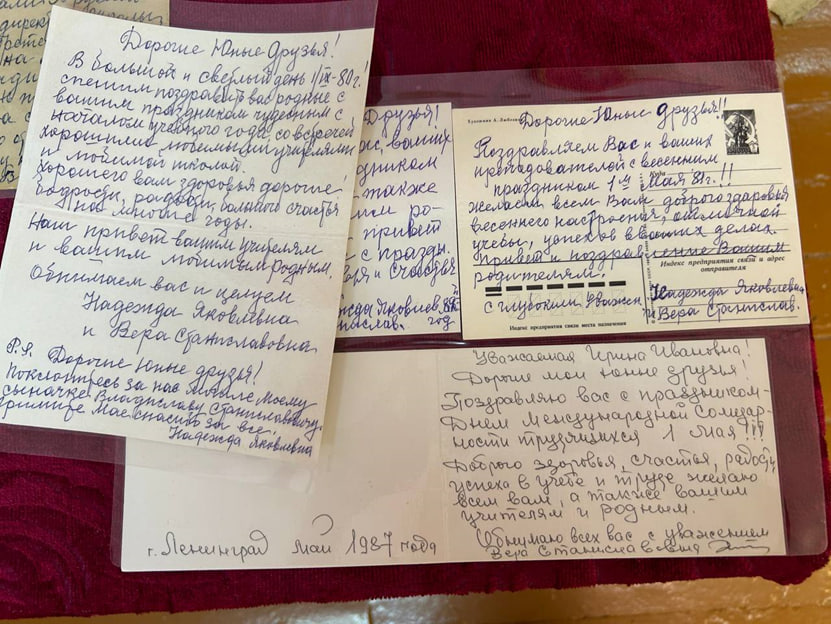 Дорогие Юные Друзья!
В большой и светлый день 1/IX-81г!
спешим поздравить вас родные с
вашим праздником чудесным с
началом учебного года, со встречей
хорошими любимыми учителями
и любимой школой.
хорошего вам здоровья дорогие
бодрости, радости, большого счастья
на многие годы.
Наш привет вашим учителям
и вашим любимым родным.
Обнимаем вас и целуем
Надежда Яковлевна
и Вера Станиславовна
P.S. Дорогие Юные друзья!
Поклонитесь за нас могиле моему
сыночке Владиславу Станиславовичу.
Примите Мое спасибо за все.
Надежда Яковлевна
Друзья!
ас, ваших
дником
также
ро-
привет
с празд.
счастья
год
Художник А. Любез
Дорогие Юные друзья!!
Поздравляем Вас и ваших
преподавателей с весенним
праздником 1ым Мая 81г.!!
желаем всем Вам доброго здоровья
весеннего настроения, отличной
учебы, успехов в ваших делах.
Привет и поздравление Вашим
родителям.
Куда
Индекс предприятия связи и адрес
отправителя
с глубоким Уважен.
Надежда Яковлевна
и Вера Станислав.
Индекс предприятия связи места назначения
Уважаемая Ирина Ивановна!
Дорогие мои Юные друзья!
Поздравляю вас с праздником-
Днём Международной Солидар-
ности трудящихся 1 Мая!!!
Доброго здоровья, счастья, радости,
успеха в учебе и труде желаю
всем вам, а также вашим
учителям и родным.
Обнимаю всех вас с уважением
Вера Станиславовна
г. Ленинград май 1987 года